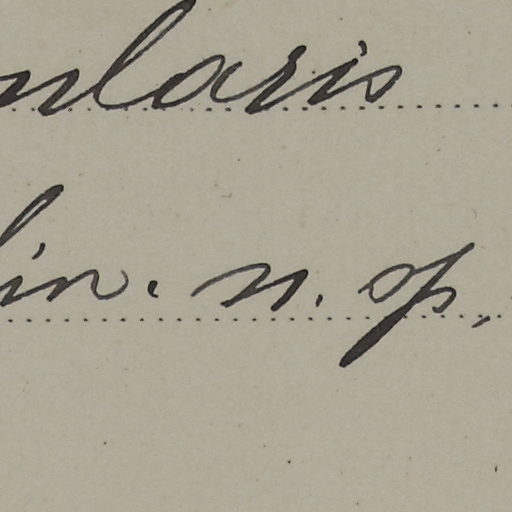 ularis
lin. n. sp.